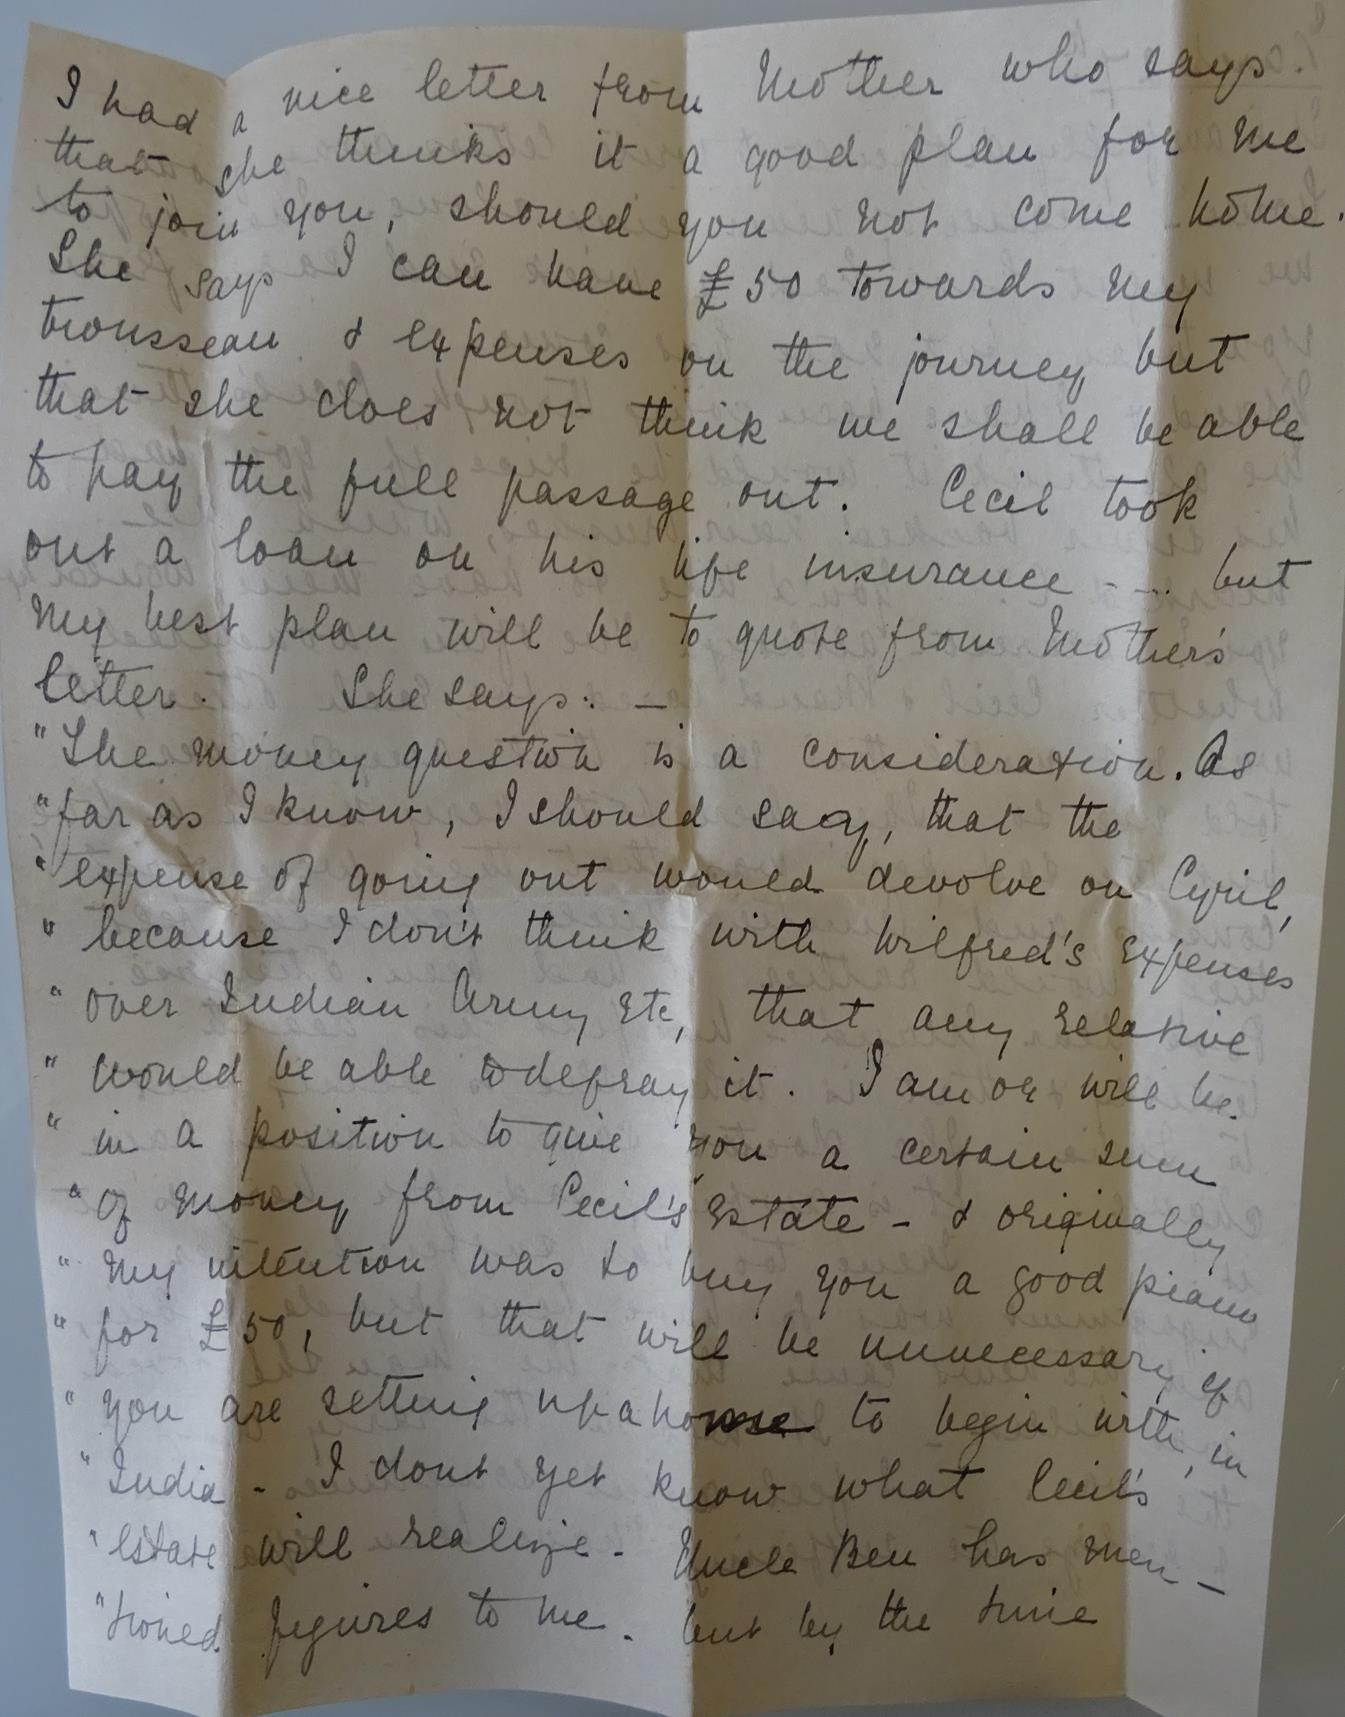 I had a nice letter from Mother who says.
that she thinks it a good plan for me
to join you, should you not come home.
She says I can have £50 towards my
trousseau & expenses on the journey but
that she does not think we shall be able
to pay the full passage out. Cecil took
out a loan on his life insurance - ... but
my best plan will be to quote from Mother's
letter. She says: —
"The money question is a consideration. As
"far as I know, I should say, that the
"expense of going out would devolve on Cyril,
"because I don't think with Wilfred's expenses
"over Indian Army etc, that any relative
"would be able to defray it. I am or will be
"in a position to give you a certain sum
"of money from Cecil's estate - & originally
"my intention was to buy you a good piano
"for £50, but that will be unnecessary if
"you are setting up a house to begin with, in
"India - I dont yet know what Cecil's
"Estate will realize - Uncle Ben has men-
"tioned figures to me - but by the time